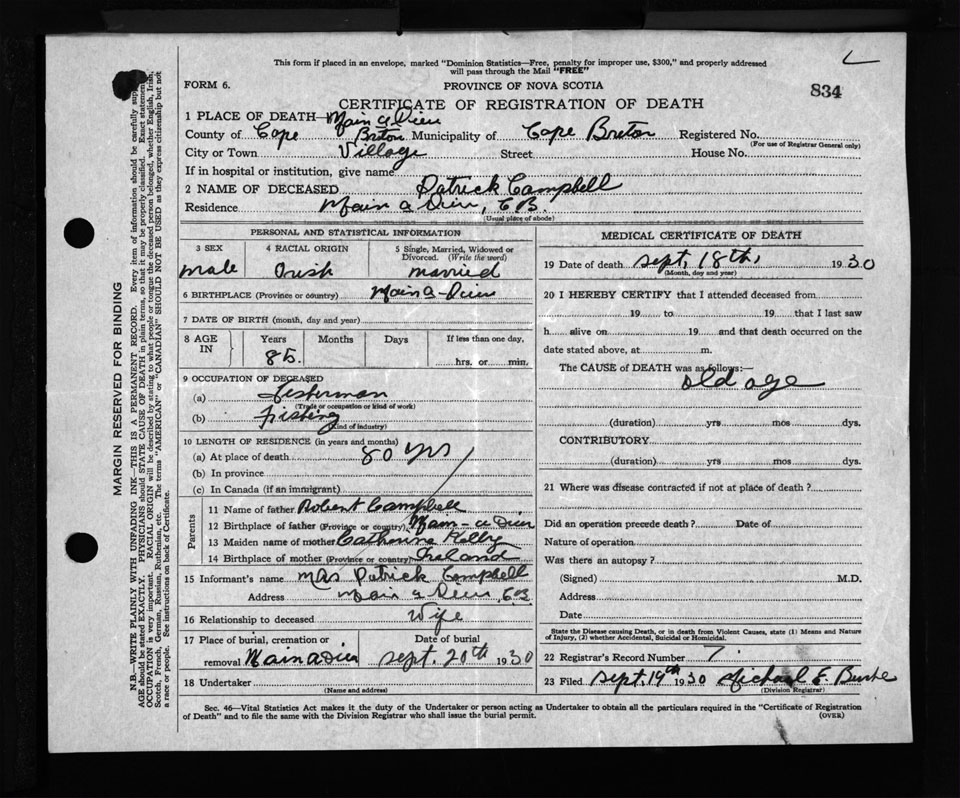 This form if placed in an envelope, marked "Dominion Statistics—Free, penalty for improper use, $300," and properly addressed
will pass through the Mail "FREE"
FORM 6.
PROVINCE OF NOVA SCOTIA
834
CERTIFICATE OF REGISTRATION OF DEATH
1 PLACE OF DEATH— Main a Dieu
County of Cape Breton Municipality of Cape Breton Registered No.
(For use of Registrar General only)
City or Town Village Street House No.
If in hospital or institution, give name
2 NAME OF DECEASED Patrick Campbell
Residence Main a Dieu, C.B.
(Usual place of abode)
PERSONAL AND STATISTICAL INFORMATION
3 SEX 4 RACIAL ORIGIN 5 Single, Married, Widowed or Divorced. (Write the word)
male Irish married
6 BIRTHPLACE (Province or country) Main a-Dieu
7 DATE OF BIRTH (month, day and year)
8 AGE IN Years Months Days If less than one day,
hrs. or min.
9 OCCUPATION OF DECEASED
(a) Fisherman
(Trade or occupation or kind of work)
(b) Fishing
(Kind of industry)
10 LENGTH OF RESIDENCE (in years and months)
(a) At place of death 80 yrs
(b) In province
(c) In Canada (if an immigrant)
Parents
11 Name of father Robert Campbell
12 Birthplace of father (Province or country) Main-a Dieu
13 Maiden name of mother Catherine Kelly
14 Birthplace of mother (Province or country) Ireland
15 Informant's name Mrs Patrick Campbell
Address Main a Dieu, C.B.
16 Relationship to deceased Wife
17 Place of burial, cremation or removal Main a Dieu
Date of burial
Sept. 20th 1930
18 Undertaker
(Name and address)
MEDICAL CERTIFICATE OF DEATH
19 Date of death Sept. 18th, 1930
(Month, day and year)
20 I HEREBY CERTIFY that I attended deceased from
19 to 19 that I last saw
h alive on 19 and that death occurred on the
date stated above, at m.
The CAUSE of DEATH was as follows:—
old age
(duration) yrs mos dys.
CONTRIBUTORY
(duration) yrs mos dys.
21 Where was disease contracted if not at place of death?
Did an operation precede death? Date of
Nature of operation
Was there an autopsy?
(Signed) M.D.
Address
Date
State the Disease causing Death, or in death from Violent Causes, state (1) Means and Nature
of Injury, (2) whether Accidental, Suicidal or Homicidal.
22 Registrar's Record Number 7
23 Filed Sept. 19th 1930 Michael E. Burke
(Division Registrar)
Sec. 46—Vital Statistics Act makes it the duty of the Undertaker or person acting as Undertaker to obtain all the particulars required in the "Certificate of Registration
of Death" and to file the same with the Division Registrar who shall issue the burial permit.
(OVER)
MARGIN RESERVED FOR BINDING
N.B.—WRITE PLAINLY WITH UNFADING INK—THIS IS A PERMANENT RECORD. Every item of information should be carefully
AGE should be stated EXACTLY. PHYSICIANS should STATE CAUSE OF DEATH in plain terms, so that it may be properly classified. Exact statement
OCCUPATION is very important. RACIAL ORIGIN will be described by stating to what people or tongue the deceased person belonged, whether English, Irish,
Scotch, French, German, Russian, Ruthenian, etc. The terms "AMERICAN" or "CANADIAN" SHOULD NOT BE USED as they express citizenship but not
a race or people. See instructions on back of Certificate.